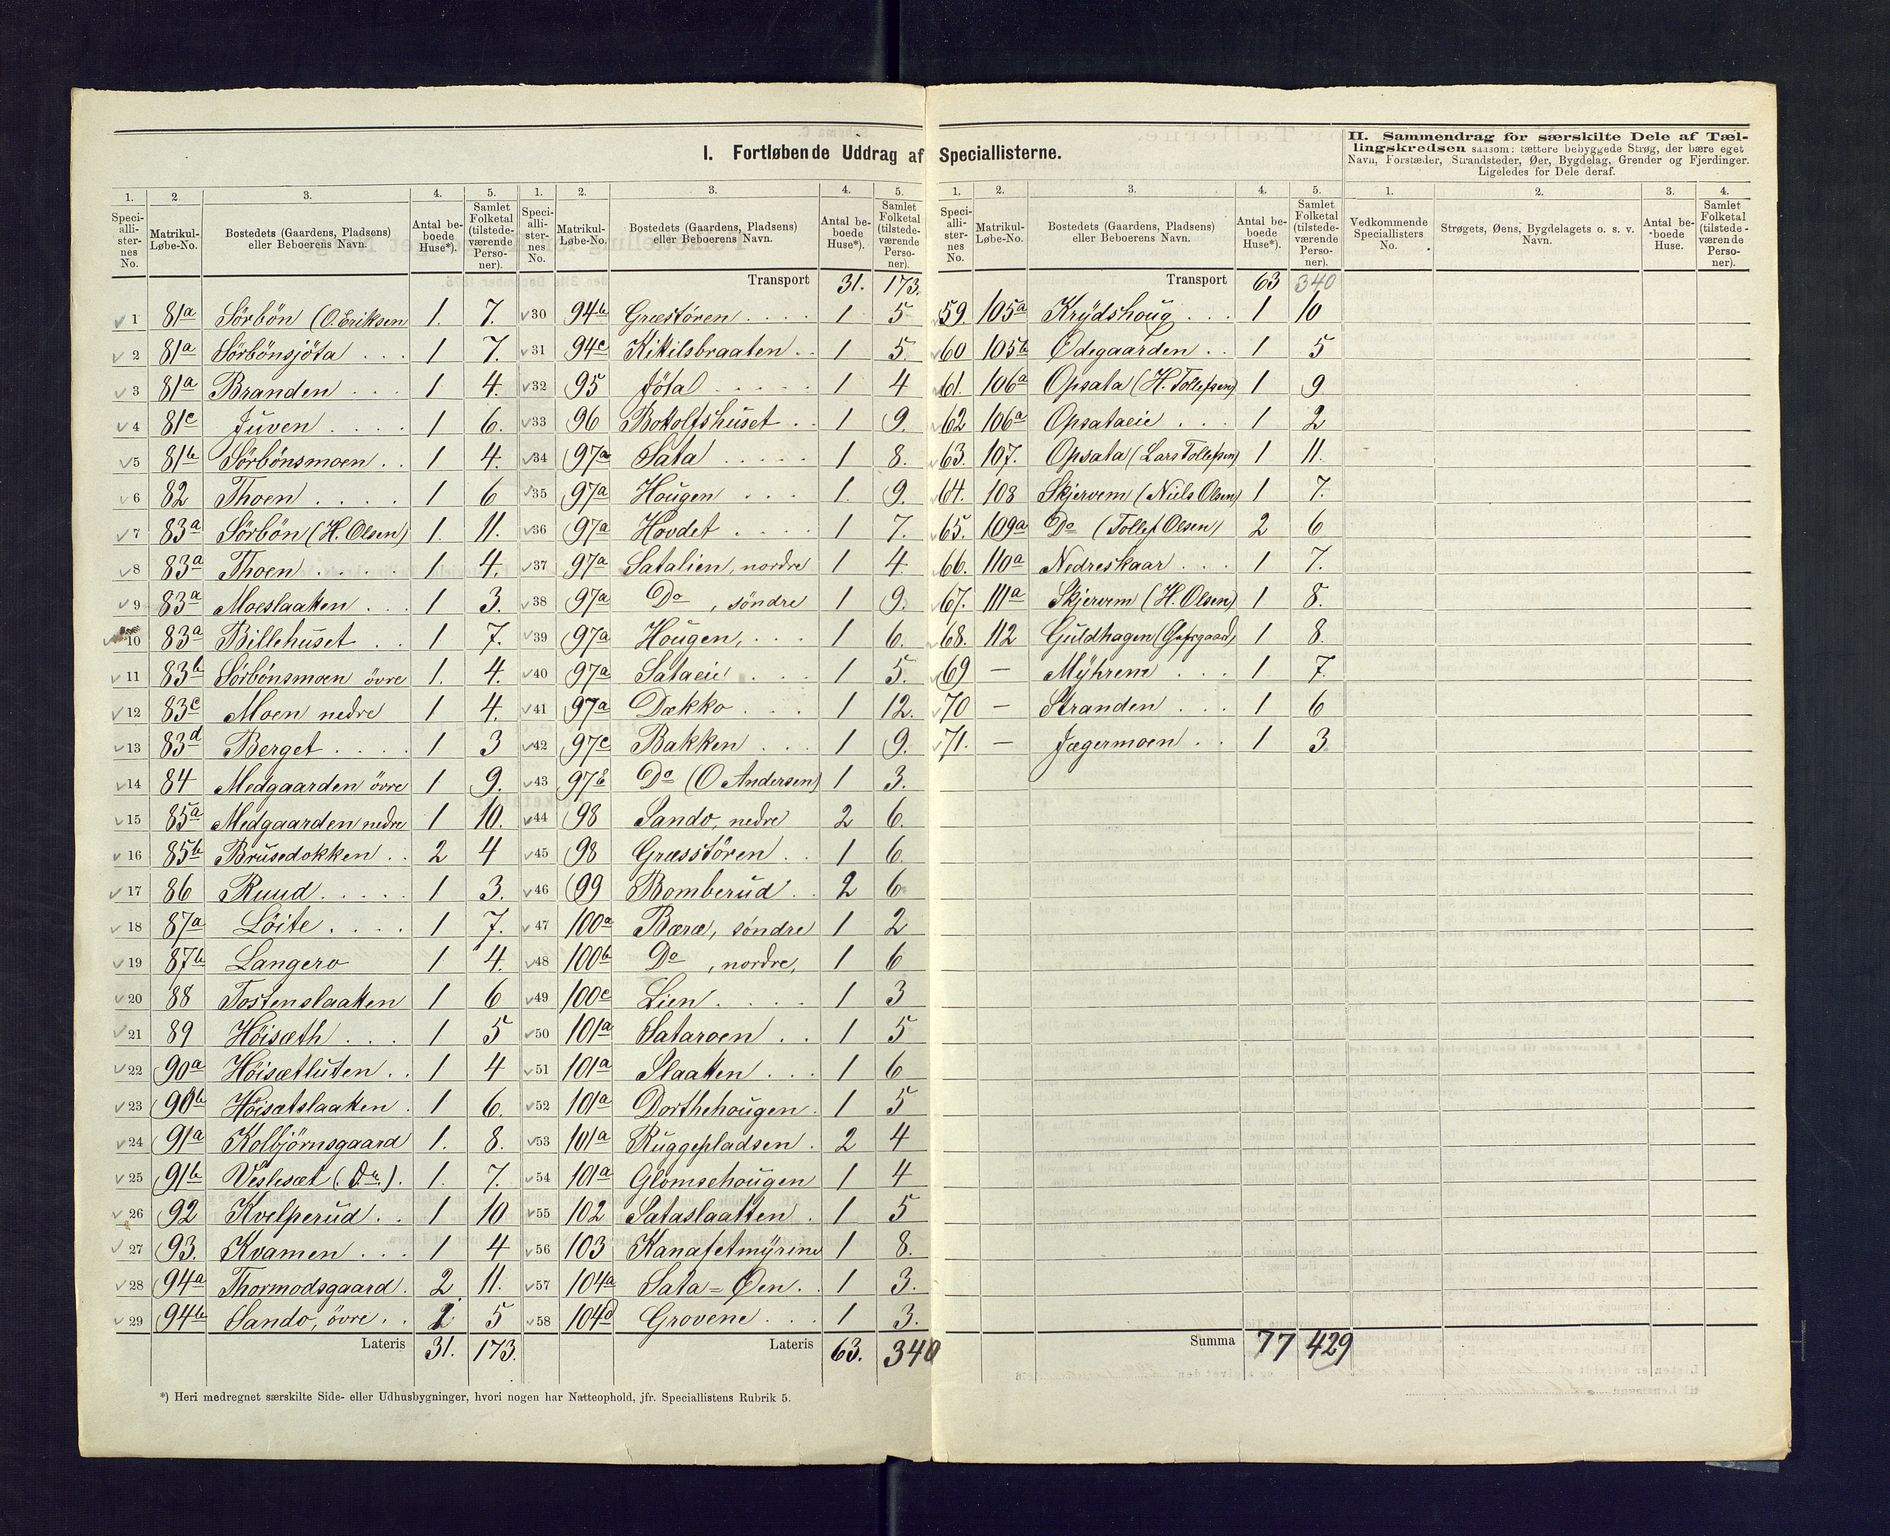 I. Fortløbende Uddrag af Speciallisterne.
II. Sammendrag for særskilte Dele af Tæl-
lingskredsen saasom: tættere bebyggede Strøg, der bære eget
Navn, Forstæder, Strandsteder, Øer, Bygdelag, Grender og Fjerdinger.
Ligeledes for Dele deraf.
1. 2 3. 4. 5.
Speci-allister-nes No. Matrikul-Løbe-No. Bostedets (Gaardens, Pladsens) eller Beboerens Navn. Antal be-boede Huse*). Samlet Folketal (tilstede-værende Perso-ner).
1 81a Sörbön (O. Eriksen 1. 7.
2 81a Sörbönsjöta 1 7.
3 81a Branden 1 4.
4 81c Juven 1 6.
5 81b Sörbönsmoen 1 4.
6 82 Thoen 1 6
7 83a Sörbön (H. Olsen) 1. 11.
8 83a Thoen 1 4.
9 83a Moeslaatten 1 3.
10 83a Billehuset 1 7.
11 83b Sörbönsmoen övre 1. 4.
12 83c Moen nedre 1 4.
13 83d Berget 1 3
14 84 Medgaarden övre 1 9.
15 85a Medgaarden nedre 1 10.
16 85b Brusedokken 2 4
17 86 Ruud 1 3.
18 87a Löite 1 7.
19 87b Langero 1 4.
20 88 Tostenslaatten 1 6
21 89 Höisæth 1 5
22 90a Höisætluten 1 4
23 90b Höisætslaatten 1 6.
24 91a Kolbjörnsgaard 1. 8.
25 91b Veslesæt (Do.) 1. 7.
26 92 Kvelperud 1 10
27 93. Kvamen 1 4
28 94a Thormodsgaard 2 11.
29 94b Sando, övre 2 5
Lateris 31. 173.
1. 2. 3. 4. 5.
Speci-allister-nes No. Matrikul-Løbe-No. Bostedets (Gaardens, Pladsens) eller Beboerens Navn. Antal be-boede Huse*). Samlet Folketal (tilstede-værende Perso-ner).
Transport 31. 173.
30 94b Græstören 1 5
31 94c Kitilsbraaten 1 5.
32 95 Jötal 1 4
33 96 Botolfshuset 1 9.
34 97a Sata 1 8.
35 97a Hougen 1. 9.
36 97a Hovdet 1 7.
37 97a Satalien, nordre 1 4.
38 97a Do, söndre 1 9.
39 97a Hougen, 1 6.
40 97a Sataeie 1 5.
41 97a Dækko 1 12.
42 97c Bakken 1 9.
43 97 Do (O Andersen) 1 3.
44 98 Sando, nedre 2 6.
45 98 Græsstören 1 6.
46 99 Bomberud 2 6
47 100a Bæræ, söndre 1 2
48 100b Do, nordre, 1 6
49 100c Lien 1 3
50 101a Sataroen 1 5
51 101a Slaatten 1 6
52 101a Dorthehougen 1 5
53 101a Ruggepladsen 2 4
54 101a Glomsehougen 1 4
55 102 Sataslaatten 1 5
56 103 Kanafetmÿrene 1 8.
57 104a Sata=Öen 1 3.
58 104d Grovene 1 3.
Lateris 63. 340
1. 2. 3. 4. 5.
Speci-allister-nes No. Matrikul-Løbe-No. Bostedets (Gaardens, Pladsens) eller Beboerens Navn. Antal be-boede Huse*). Samlet Folketal (tilstede-værende Perso-ner).
Transport 63 340
59. 105a Krÿdshoug 1 10
60 105b Ödegaarden 1 5
61. 106a Opsata (H. Tollefsen) 1 9
62 106a Opsataeie 1 2
63. 107. Opsata (Lars Tollefsen) 1 11.
64. 108 Skjervem (Niels Olsen) 1 7.
65. 109a Do (Tollef Olsen) 2 6
66. 110a Nedreskaar 1 7.
67. 111a Skjervem (H. Olsen) 1 8.
68. 112 Guldhagen 1 8.
69 — Mÿhrene 1 7
70 — Stranden 1 6
71. — Jægermoen 1 3
Summa 77 429
1. 2. 3. 4.
Vedkommende Speciallisters No. Strøgets, Øens, Bygdelagets o. s. v. Navn. Antal be-boede Huse. Samlet Folketal (tilstede-værende Perso-ner).
*) Heri medregnet særskilte Side- eller Udhusbygninger, hvori nogen har Natteophold, jfr. Speciallistens Rubrik 5.